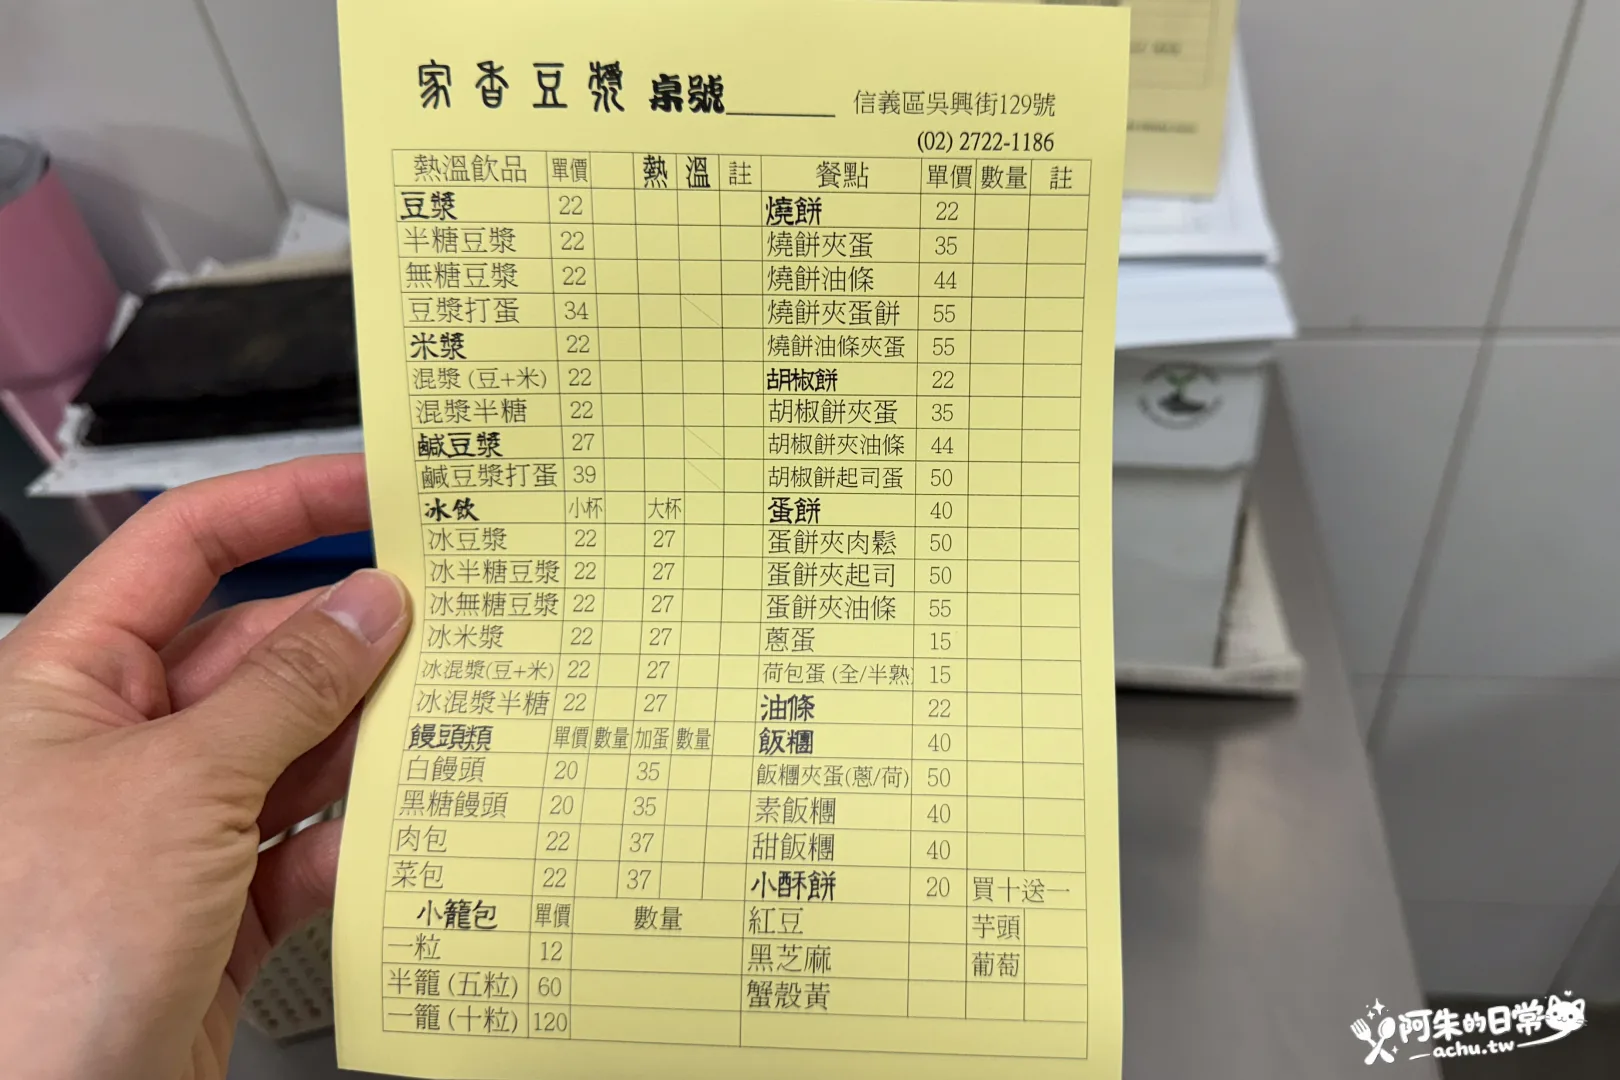 家香豆漿 桌號______ 信義區吳興街129號
(02) 2722-1186
熱溫飲品 單價 熱 溫 註 餐點 單價 數量 註
豆漿 22 燒餅 22
半糖豆漿 22 燒餅夾蛋 35
無糖豆漿 22 燒餅油條 44
豆漿打蛋 34 燒餅夾蛋餅 55
米漿 22 燒餅油條夾蛋 55
混漿(豆+米) 22 胡椒餅 22
混漿半糖 22 胡椒餅夾蛋 35
鹹豆漿 27 胡椒餅夾油條 44
鹹豆漿打蛋 39 胡椒餅起司蛋 50
冰飲 小杯 大杯 蛋餅 40
冰豆漿 22 27 蛋餅夾肉鬆 50
冰半糖豆漿 22 27 蛋餅夾起司 50
冰無糖豆漿 22 27 蛋餅夾油條 55
冰米漿 22 27 蔥蛋 15
冰混漿(豆+米) 22 27 荷包蛋(全/半熟) 15
冰混漿半糖 22 27 油條 22
饅頭類 單價 數量 加蛋 數量 飯糰 40
白饅頭 20 35 飯糰夾蛋(蔥/荷) 50
黑糖饅頭 20 35 素飯糰 40
肉包 22 37 甜飯糰 40
菜包 22 37 小酥餅 20 買十送一
小籠包 單價 數量 紅豆 芋頭
一粒 12 黑芝麻 葡萄
半籠(五粒) 60 蟹殼黃
一籠(十粒) 120
阿朱的日常
achu.tw